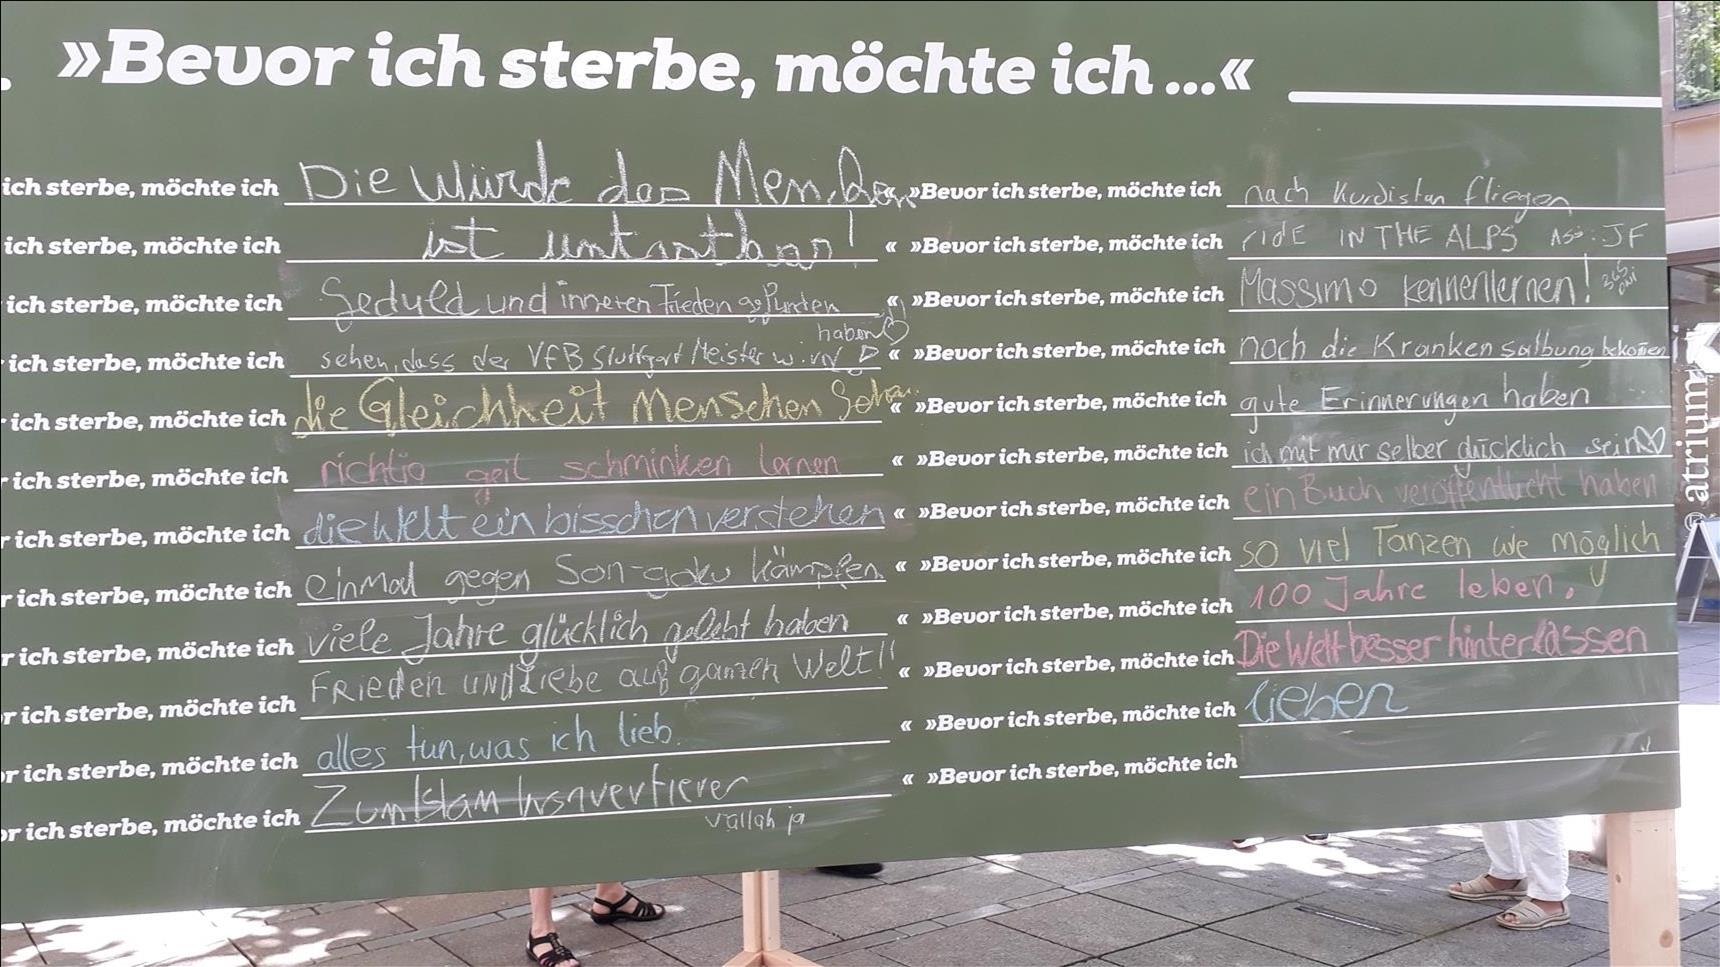 . »Bevor ich sterbe, möchte ich ...«
ich sterbe, möchte ich Die Würde des Menschen «
ich sterbe, möchte ich ist untastbar! «
ich sterbe, möchte ich Geduld und inneren Frieden gefunden «
haben
ich sterbe, möchte ich sehen, dass der VfB Stuttgart Meister wird «
r ich sterbe, möchte ich die Gleichheit Menschen «
r ich sterbe, möchte ich richtig geil schminken lernen «
r ich sterbe, möchte ich die Welt ein bisschen verstehen «
r ich sterbe, möchte ich einmal gegen Son-goku kämpfen «
r ich sterbe, möchte ich viele Jahre glücklich gelebt haben «
or ich sterbe, möchte ich Frieden und Liebe auf ganzen Welt!! «
or ich sterbe, möchte ich alles tun, was ich lieb. «
or ich sterbe, möchte ich Zum Islam konvertieren «
vallah ja
»Bevor ich sterbe, möchte ich nach Kurdistan fliegen
»Bevor ich sterbe, möchte ich ridE IN THE ALPS JF
»Bevor ich sterbe, möchte ich Massimo kennenlernen!
»Bevor ich sterbe, möchte ich noch die Krankensalbung bekommen
»Bevor ich sterbe, möchte ich gute Erinnerungen haben
»Bevor ich sterbe, möchte ich ich mit mir selber glücklich sein
»Bevor ich sterbe, möchte ich ein Buch veröffentlicht haben
»Bevor ich sterbe, möchte ich so viel Tanzen wie möglich
»Bevor ich sterbe, möchte ich 100 Jahre leben.
»Bevor ich sterbe, möchte ich Die Welt besser hinterlassen
»Bevor ich sterbe, möchte ich lieben
»Bevor ich sterbe, möchte ich
© atrium